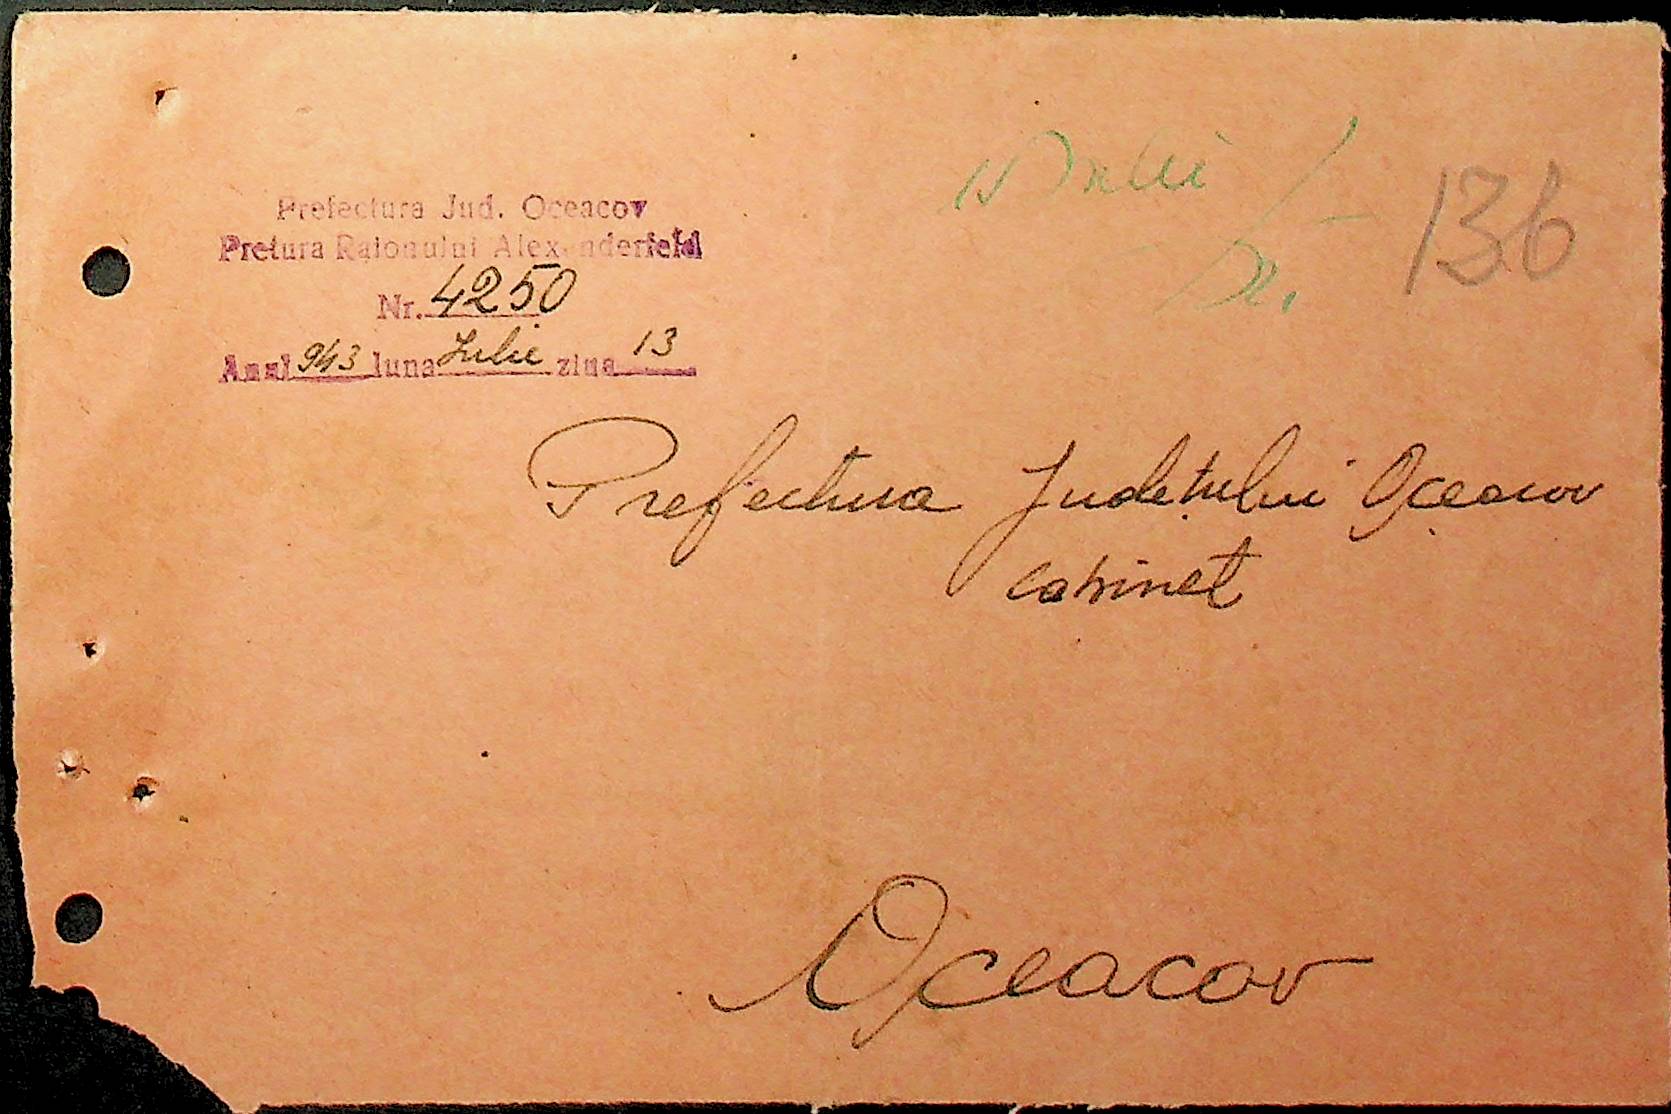 Prefectura Jud. Oceacov
Pretura Raionului Alexanderfeld
Nr. 4250
Anul 943 luna Iulie ziua 13
136
Prefectura Județului Oceacov
Cabinet
Oceacov